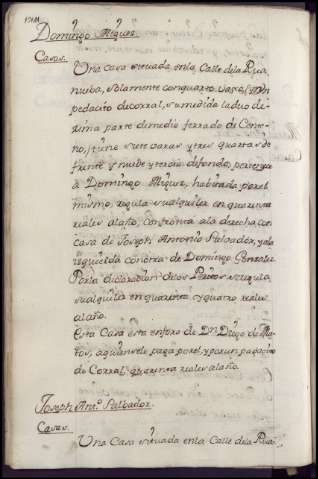 Domingo Miguez
Casas.
Una casa situada enla Calle dela Rua
nueba, solamente con quarto vajo, y un
pedacito de corral, su medida la duo de-
zima parte de medio ferrado de Cente-
no, tiene siete varas y tres quartas de
frente y nuebe y tercia de fondo, pertenece
à Domingo Miguez, habitada por el
mismo, regula su alquiler en quarenta
reales al año, confronta ala derecha, con
casa de Joseph Antonio Salbador, y ala
izquierda con otra de Domingo Gonzalez
Por la declaracion delos Peritos se regula
su alquiler en quarenta y quatro reales
al año.
Esta Casa esta en foro de Dn Diego de
aquien sele paga por el, y por un pedacito
de Corral, quarenta reales al año.
Joseph Anto Salbador.
Casas.
Una Casa situada enla Calle dela Rua